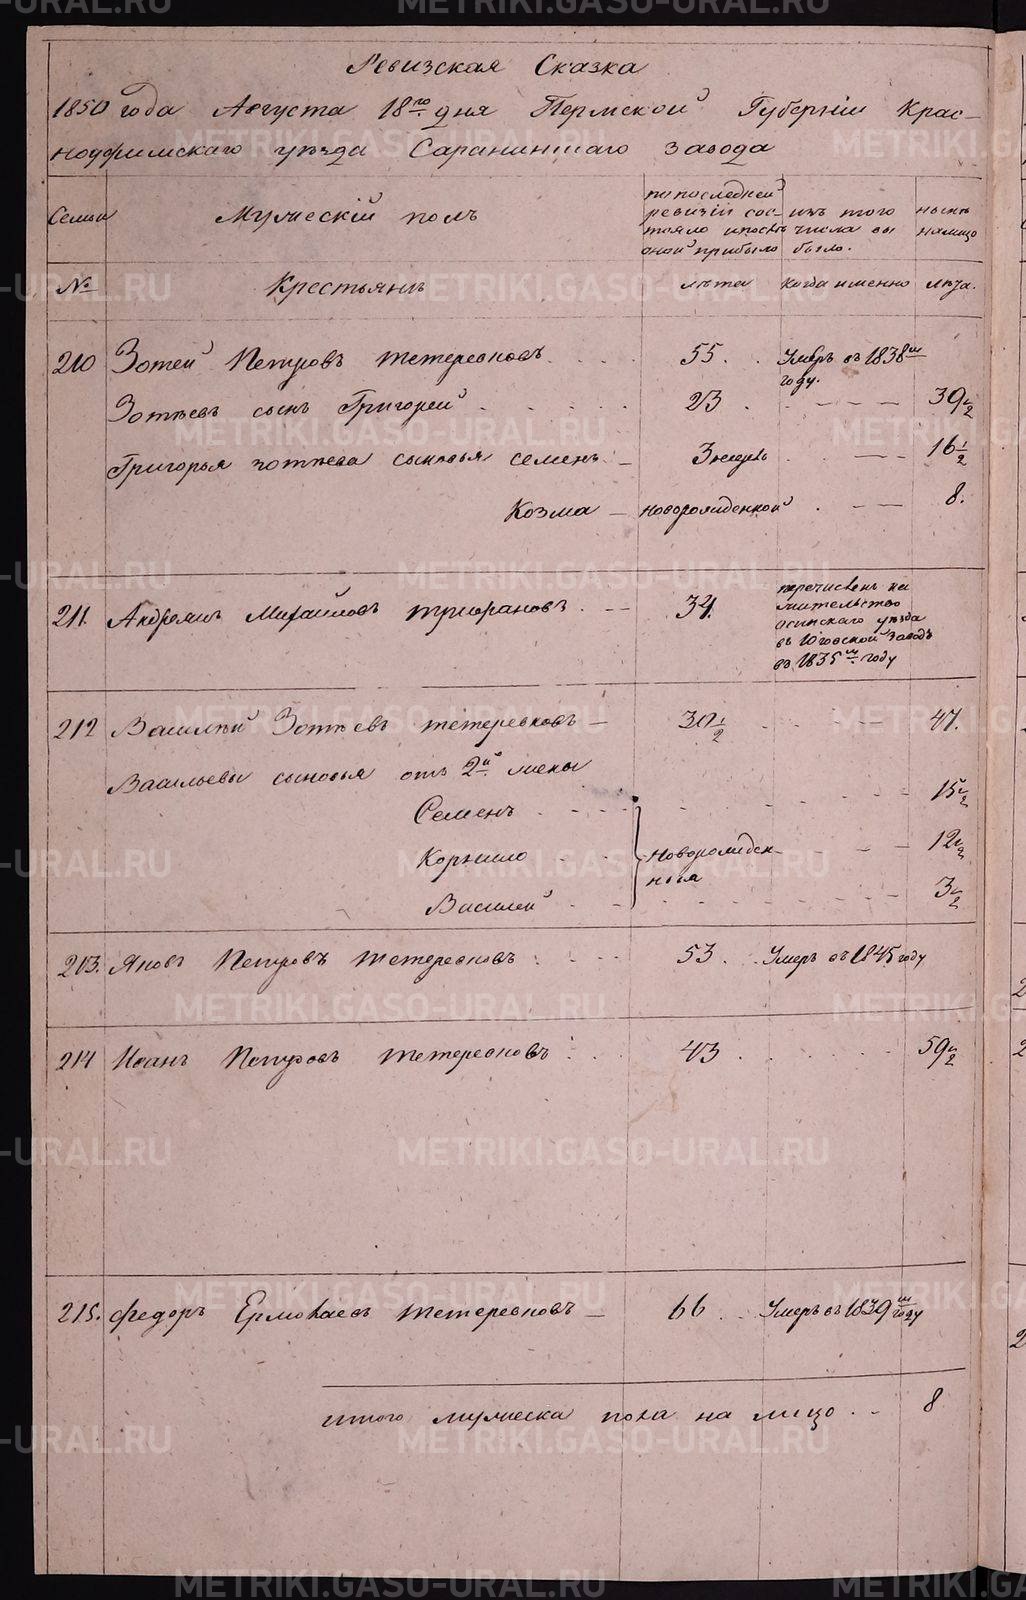 Ревизская Сказка
1850 года Августа 18го дня Пермской Губернiи Крас-
ноуфимскаго уезда Саранинскаго завода
Семьи
Мужескiй полъ
по последней ревизiи сос- тояло и после оной прибыло
изъ того числа вы было.
ныне на лицо
№
Крестьянъ
лета
когда именно
лета.
210 Зотей Петровъ Тетеревковъ 55. Умеръ въ 1838м году.
Зотеевъ сынъ Григорей 23 39 1/2
Григорья Зотеева сыновья Семенъ 3 недель 16 1/2
Козма новорожденной 8.
211. Андреянъ Михайловъ 34. перечисленъ на жительство осинскаго уезда въ Юговской заводъ въ 1835м году
212 Василей Зотеевъ Тетеревковъ 30 1/2 47.
Васильевы сыновья отъ 2й жены
Семенъ 15 1/2
Корнило Новорожден- ныя 12 1/2
Василей 3 1/2
213. Яковъ Петровъ Тетеревковъ 53. Умеръ въ 1845 году
214 Иванъ Петровъ Тетеревковъ 43 59 1/2
215. Федоръ Ермолаевъ Тетеревковъ 66 Умеръ въ 1839м году
итого мужеска пола на лицо 8
METRIKI.GASO-URAL.RU